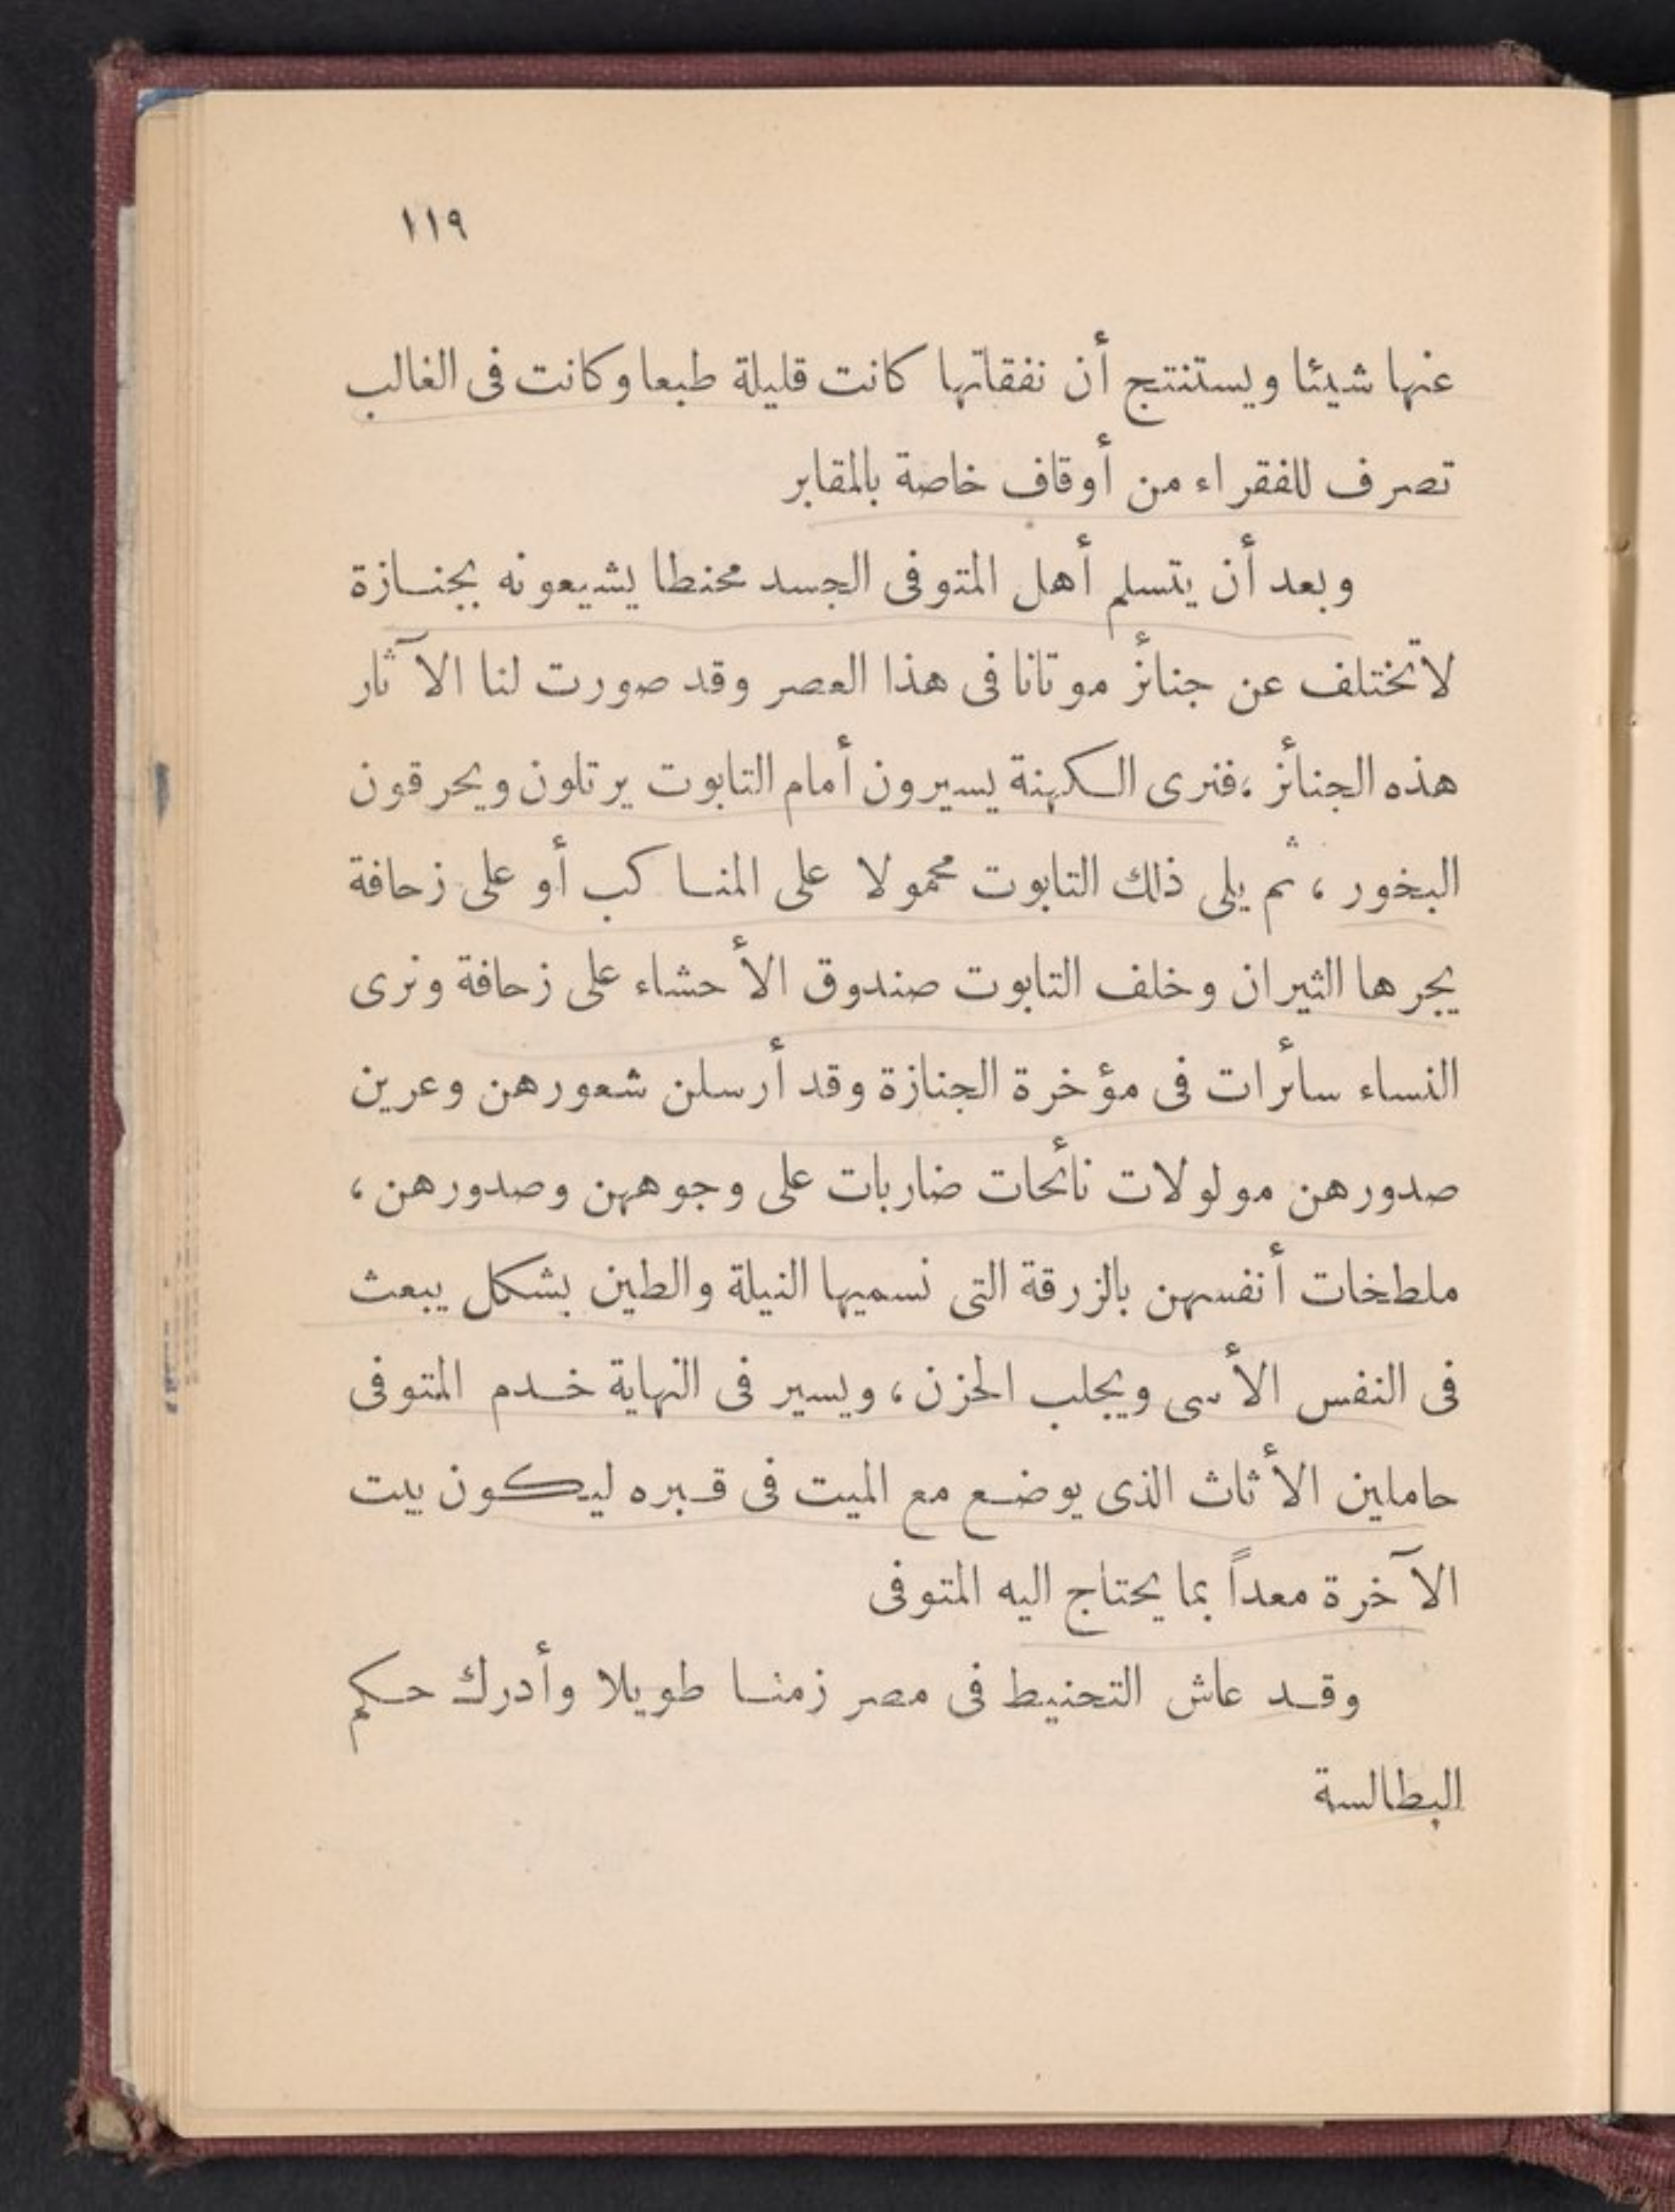 ١١٩
عنها شيئا ويستنتج أن نفقاتها كانت قليلة طبعا وكانت فى الغالب
تصرف للفقراء من أوقاف خاصة بالمقابر
وبعد أن يتسلم أهل المتوفى الجسد محنطا يشيعونه بجنازة
لا تختلف عن جنائز موتانا فى هذا العصر وقد صورت لنا الآثار
هذه الجنائز ، فنرى الكهنة يسيرون أمام التابوت يرتلون ويحرقون
البخور ، ثم يلى ذلك التابوت محمولا على المناكب أو على زحافة
يجرها الثيران وخلف التابوت صندوق الأحشاء على زحافة ونرى
النساء سائرات فى مؤخرة الجنازة وقد أرسلن شعورهن وعرين
صدورهن مولولات نائحات ضاربات على وجوههن وصدورهن ،
ملطخات أنفسهن بالزرقة التى نسميها النيلة والطين بشكل يبعث
فى النفس الأسى ويجلب الحزن ، ويسير فى النهاية خدم المتوفى
حاملين الأثاث الذى يوضع مع الميت فى قبره ليكون بيت
الآخرة معداً بما يحتاج اليه المتوفى
وقد عاش التحنيط فى مصر زمنا طويلا وأدرك حكم
البطالسة